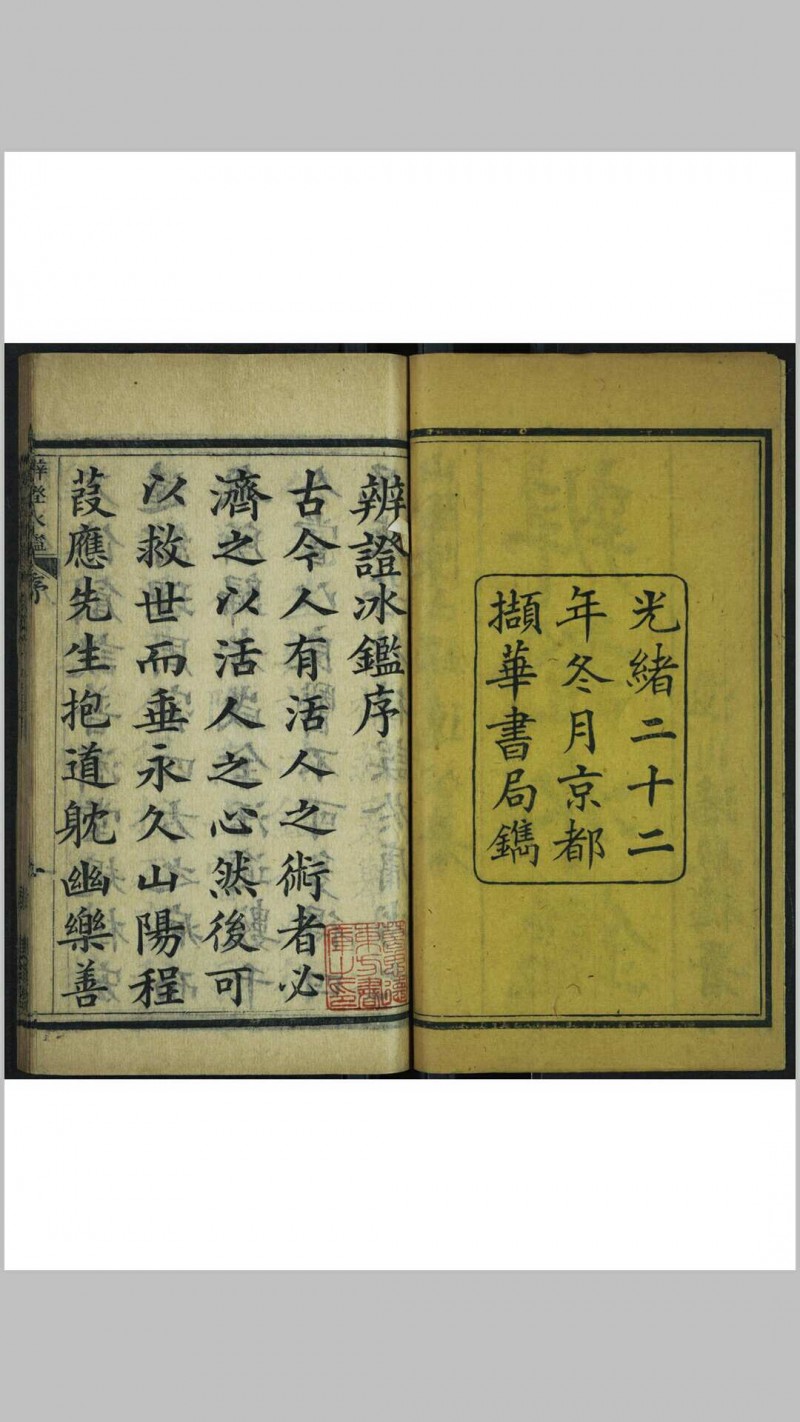 光緒二十二
年冬月京都
擷華書局鐫
辨證冰鑑序
古今人有活人之術者必
濟之以活人之心然後可
以救世而垂永久山陽程
葭應先生抱道耽幽樂善
辨證冰鑑 序